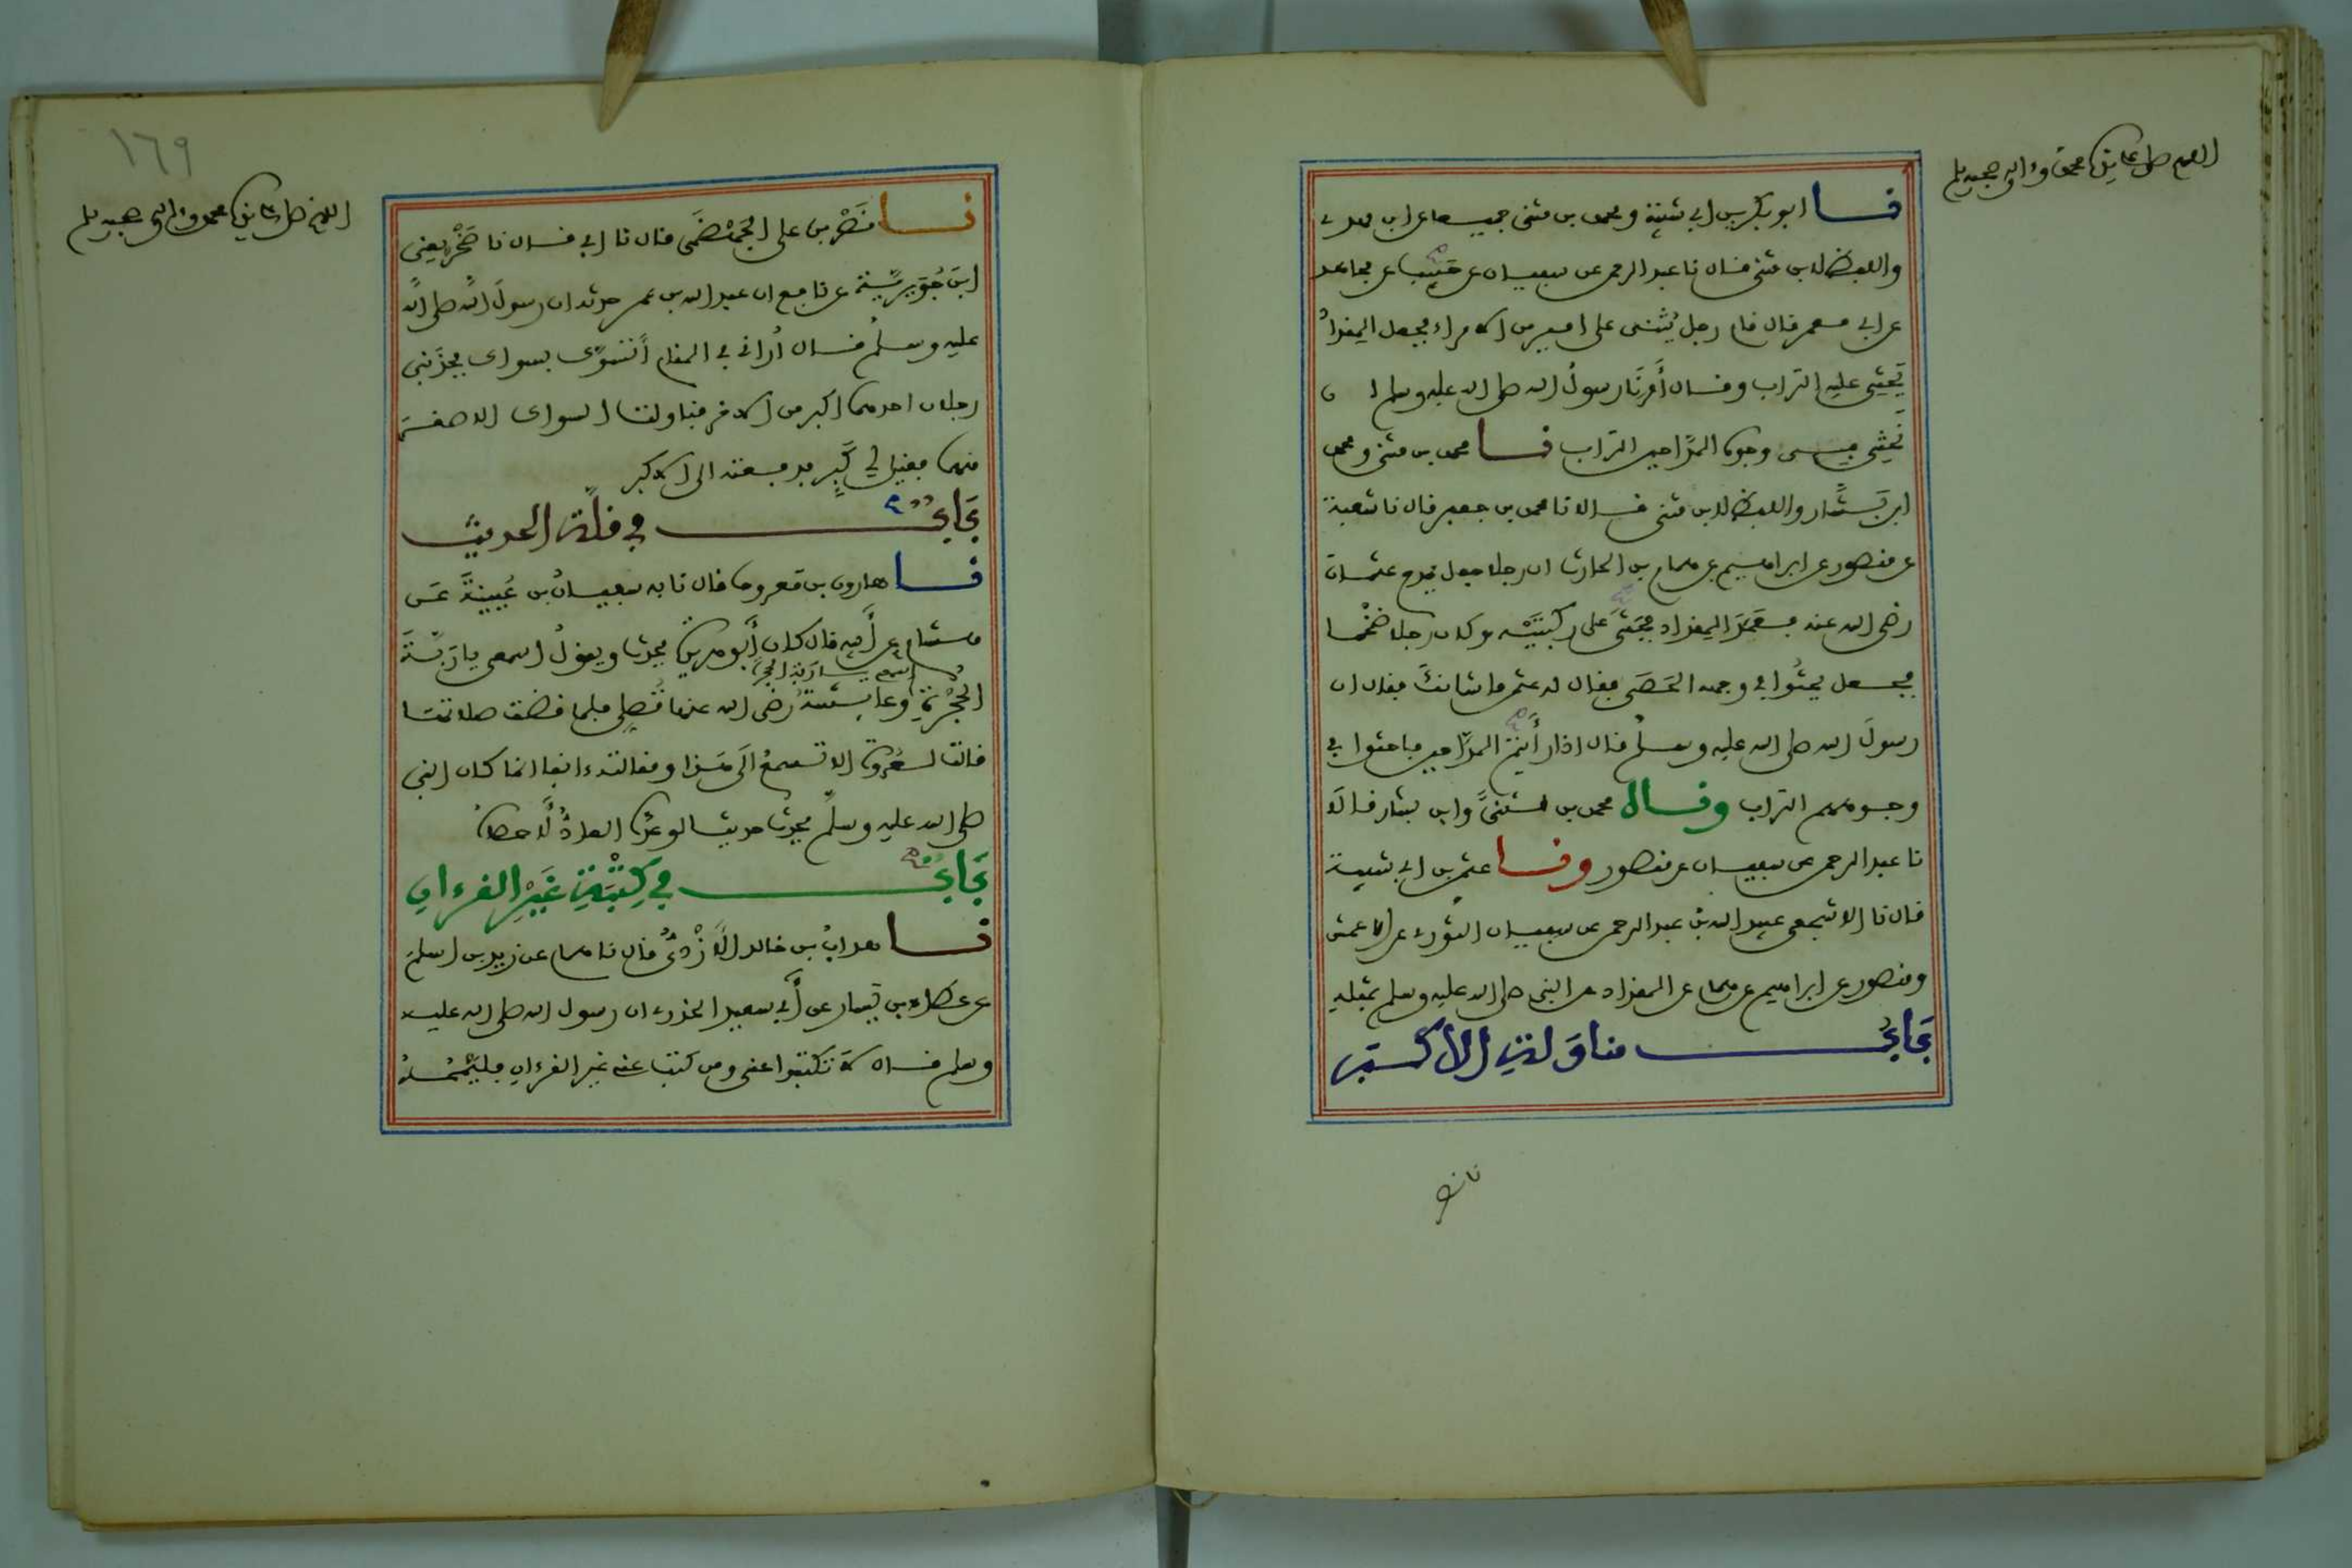 اللهم صل على سيدنا محمد وءاله وصحبه وسلم
نا ابو بكر بن ابي شيبة ومحمد بن مثنى جميعا عن ابن مهدي
واللفظ لابن مثنى فال نا عبد الرحمن عن سفيان عن حبيب عن مجاهد
عن ابي معمر فال فام رجل يُثني على امير من الامراء فجعل المفداد
يَحثِي عليه التراب وفال أَمرنَا رسولُ الله صلى الله عليه وسلم ان
نَحثِي في وجوه المدَّاحين التراب نا محمد بن مثنى ومحمد
ابن بَشَّار واللفظ لابن مثنى فالا نا محمد بن جعفر فال نا شعبة
عن منصور عن ابراهيم عن همام بن الحارث ان رجلا جعل يمدح عثمان
رضي الله عنه فعَمَدَ المفداد فجَثَى على ركبتَيْه وكان رجلا ضخْما
فجعل يحثُوا في وجهه الحَصَى ففال له عثمن ما شانكَ ففال ان
رسولَ الله صلى الله عليه وسلم فال اذا رأَيتمُ المدَّاحين فاحثوا في
وجوههم التراب وفال محمد بن مثنىَّ وابن بشار فالَا
نا عبد الرحمن عن سفيان عن منصور ونا عثمن بن ابي شيبة
فال نا الاشجعي عبيد الله بن عبد الرحمن عن سفيان الثوري عن الاعمش
ومنصور عن ابراهيم عن همام عن المفداد عن النبي صلى الله عليه وسلم بمثله
بَابُ مناوَلةِ الاكبر
نا نصر
١٦٩
اللهم صل على سيدنا محمد وءاله وصحبه وسلم
نا نَصْر بن علي الجَهْضَمِي فال نا ابي فال نا صَخْر يعني
ابنَ جُوَيرية عن نافع ان عبد الله بن عمر حدثه ان رسولَ الله صلى الله
عليه وسلم فال أُراني في المنام أَتسَوَّك بسواك فجذَبني
رجلان احدهما اكبر من الاخر فناولت السواك الاصغرَ
منهما ففيل لي كَبِّر فدفعته الى الاكبر
بَابُ في فلّة الحديث
نا هارون بن معروف فال نا به سفيانُ بن عُيينةَ عن
هشام عن أبيه فال كان أبو هريرة يحدث ويفولُ اسمعي يا ربَّةَ
اسمعي يا ربة الحجرة
الحُجْرةِ وعايشةُ رضي الله عنها تُصلي فلما فضت صلاتها
فالت لعُروة الا تسمعُ الَى هَذا ومفالته ءانفا انما كان النبي
صلى الله عليه وسلم يحدث حديثا لو عدّه العادُّ لَاحصاه
بَابُ في كِتْبَةِ غَيرِ الفرءان
نا هداب بن خالد الَازْديُّ فال نا همام عن زيد بن اسلم
عن عطاء بن يسار عن أبي سعيد الخدري ان رسول الله صلى الله عليه
وسلم فال لا تكتبوا عني ومن كتب عني غير الفرءان فليَمْحُهُ